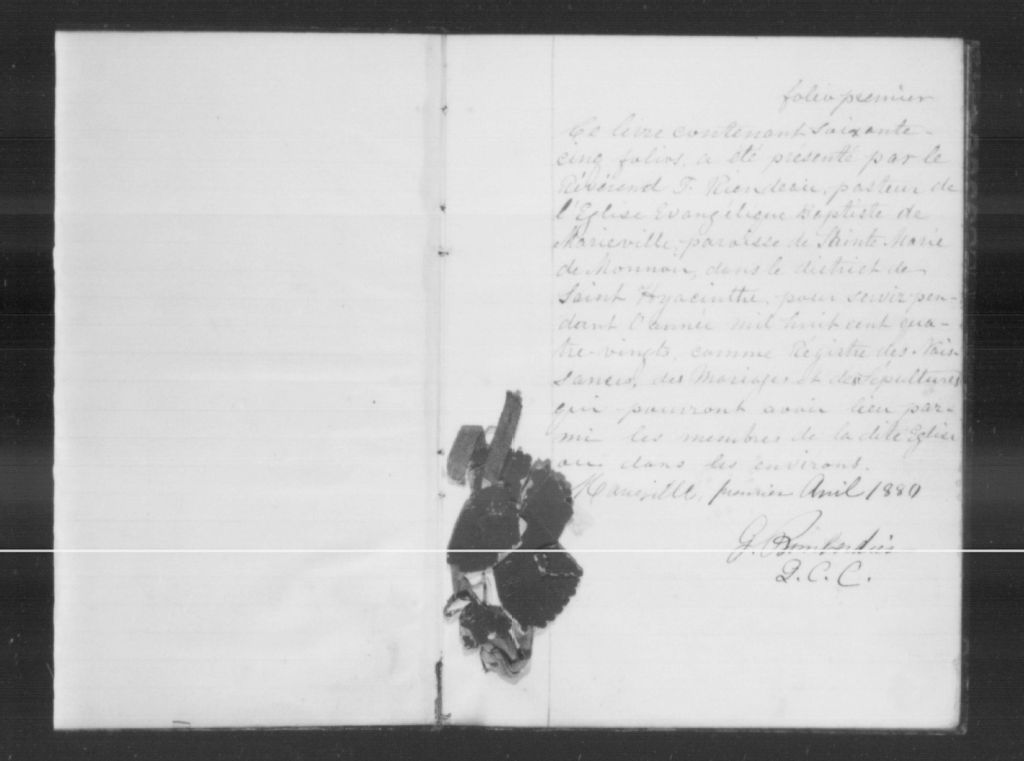 folio premier
Ce livre contenant soixante-
cinq folios, a été présenté par le
Révérend T. Riendeau, pasteur de
l'Eglise Evangélique Baptiste de
Marieville, paroisse de Sainte Marie
de Monnoir, dans le district de
Saint Hyacinthe, pour servir pen-
dant l'année mil huit cent qua-
tre-vingts, comme Régistre des Nais-
sances, des Mariages et des Sépultures
qui pourront avoir lieu par-
mi les membres de la dite Eglise
ou dans les environs.
Marieville, premier Avril 1880
G.
D.C.C.